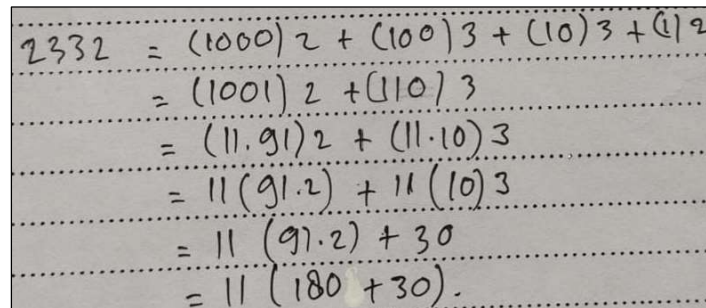 2332 = (1000) 2 + (100) 3 + (10) 3 + (1) 2
= (1001) 2 + (110) 3
= (11.91) 2 + (11.10) 3
= 11 (91.2) + 11 (10) 3
= 11 (91.2) + 30
= 11 (180 + 30).